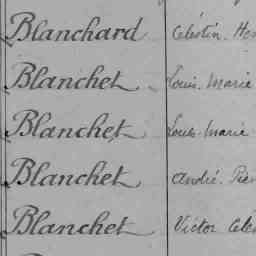 Blanchard Célestin. Hen
Blanchet Louis. Marie
Blanchet Louis. Marie
Blanchet André. Pier
Blanchet Victor